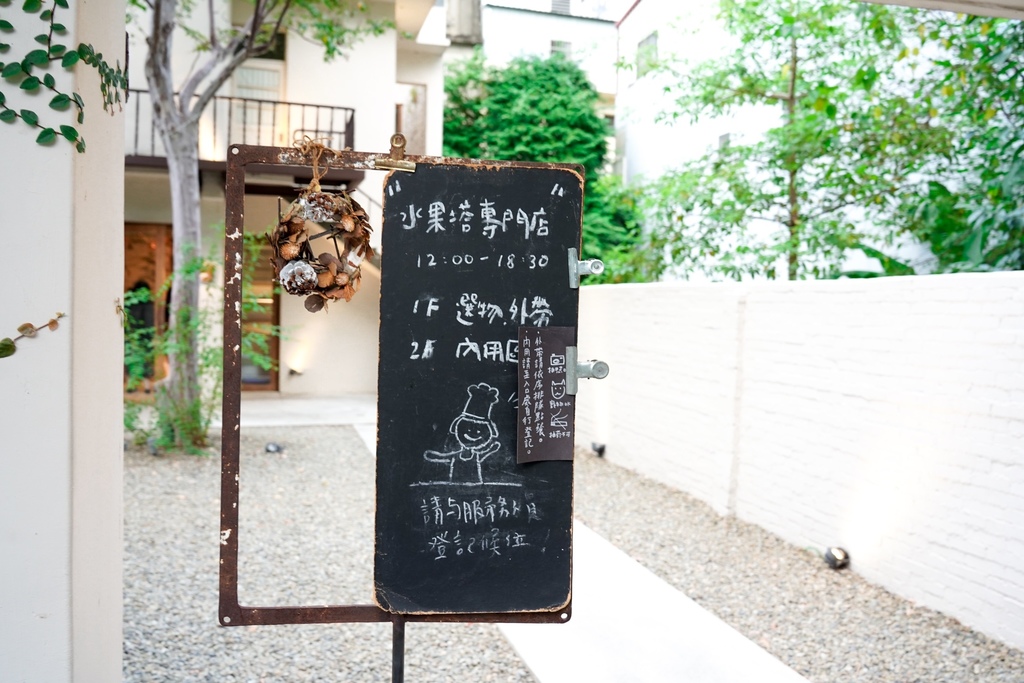 "水果塔專門店"
12:00-18:30
1F 選物.外帶
2F 內用區
外帶請依序排隊點餐。
內用請至入口處自行登記。
請与服務人員
登記候位!